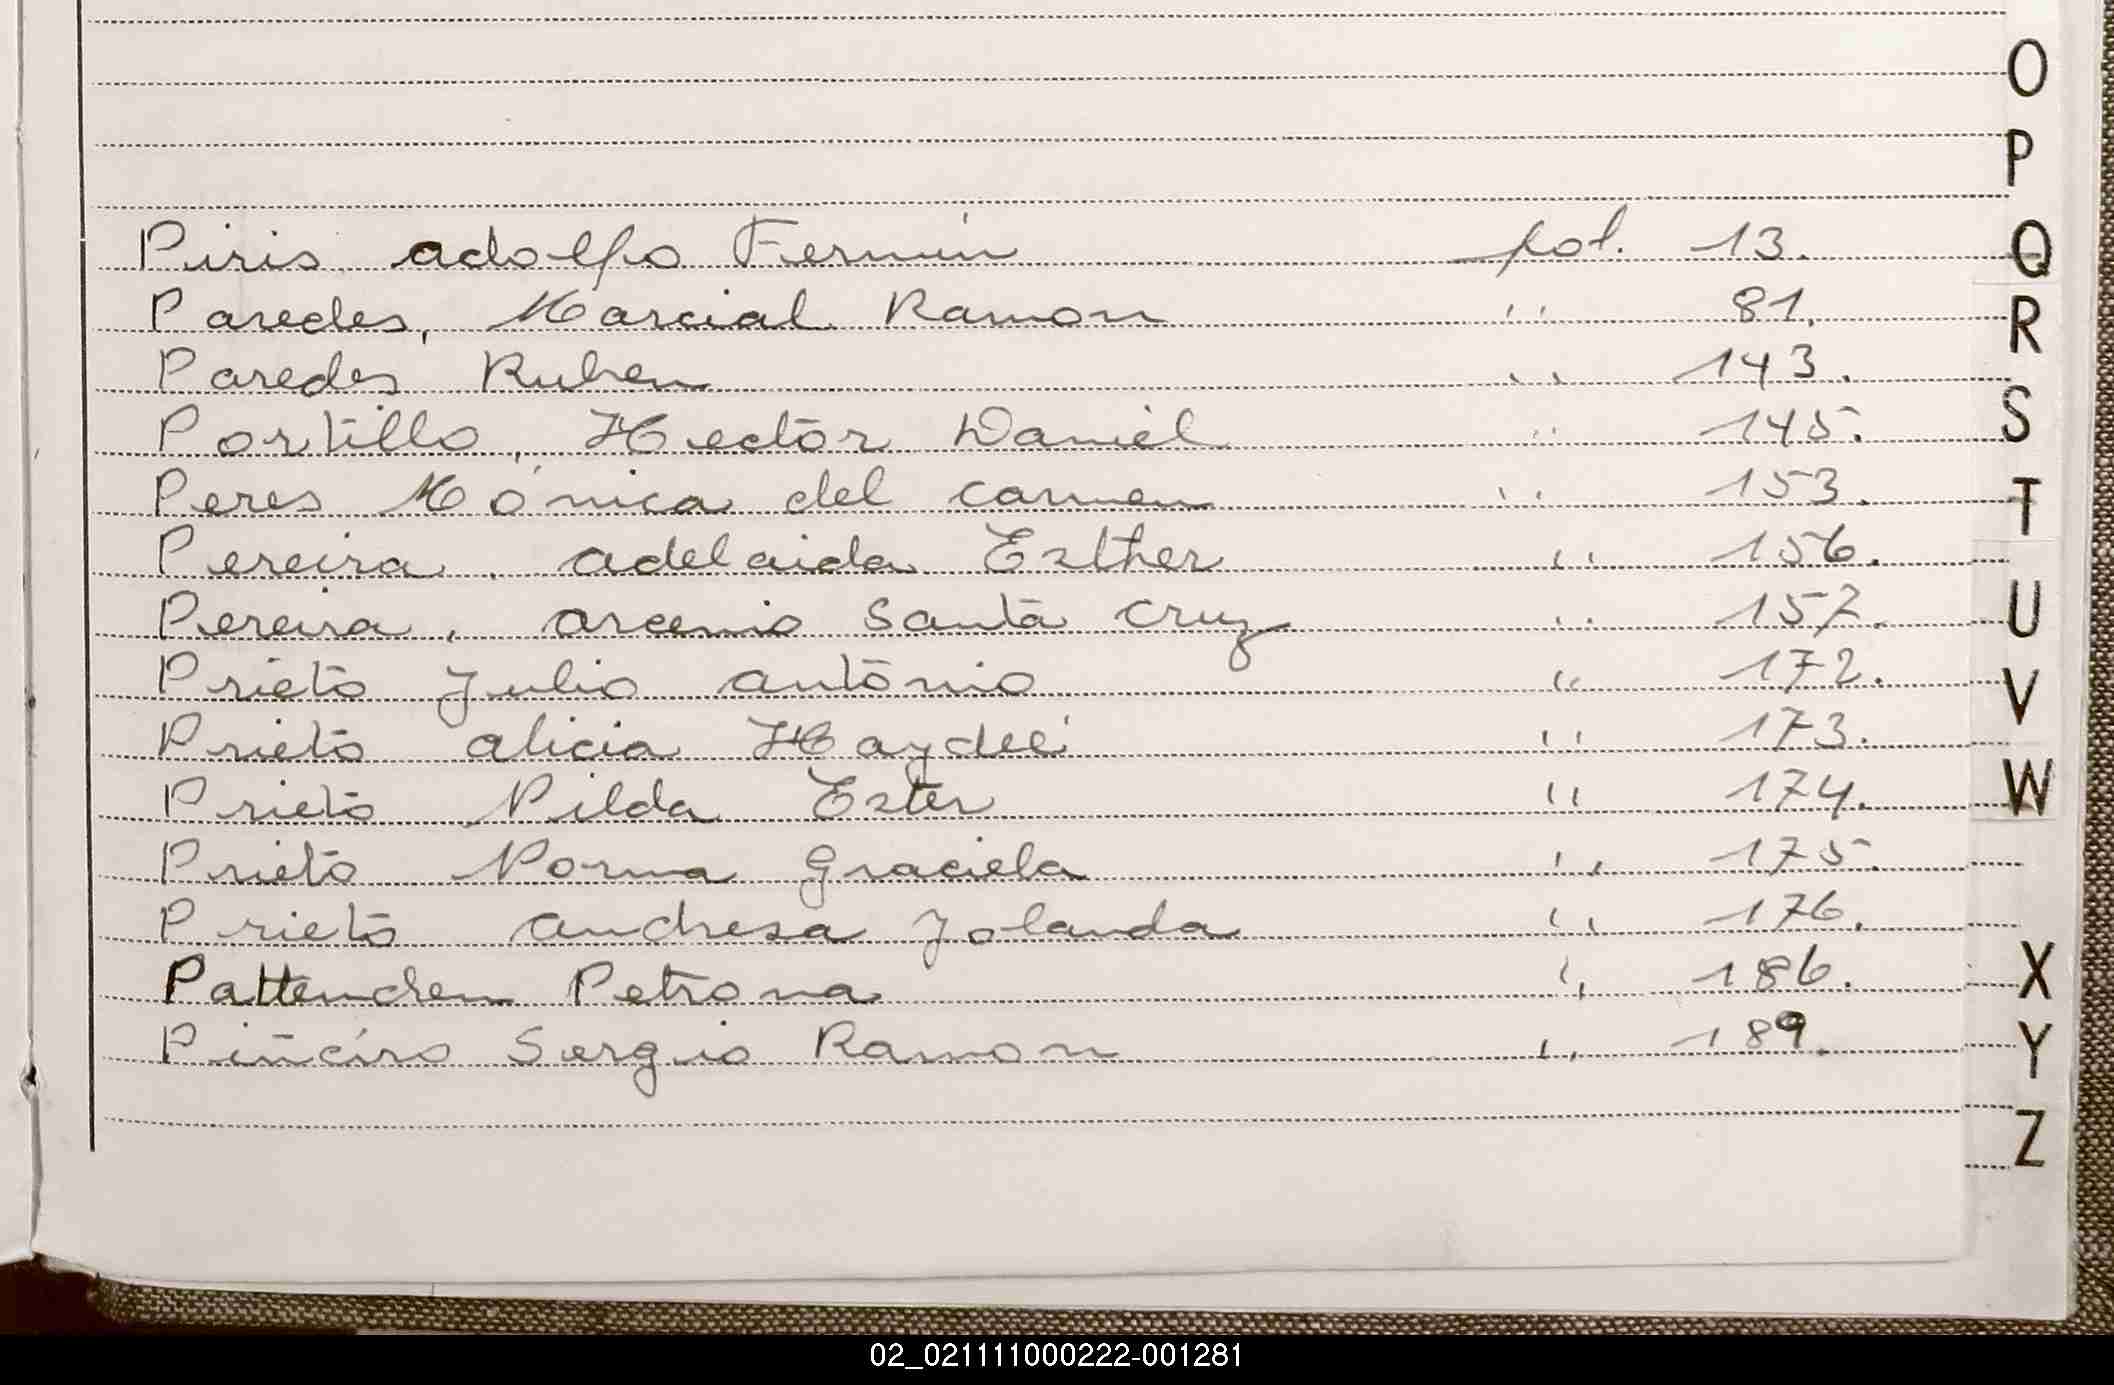 O
P
Piris adolfo Fermín fol. 13.
Q
Paredes, Marcial Ramon " 81.
R
Paredes Ruben " 143.
Portillo, Hector Daniel " 145.
S
Peres Mónica del Carmen " 153.
T
Pereira, adelaida Esther " 156.
Pereira, arcenio Santa Cruz " 157.
U
Prieto Julio antonio " 172.
V
Prieto alicia Haydeé " 173.
Prieto Nilda Ester " 174.
W
Prieto Norma Graciela " 175.
Prieto andresa Jolanda " 176.
Pattenden Petrona " 186.
X
Piñeiro Sergio Ramon " 189.
Y
Z
02_021111000222-001281